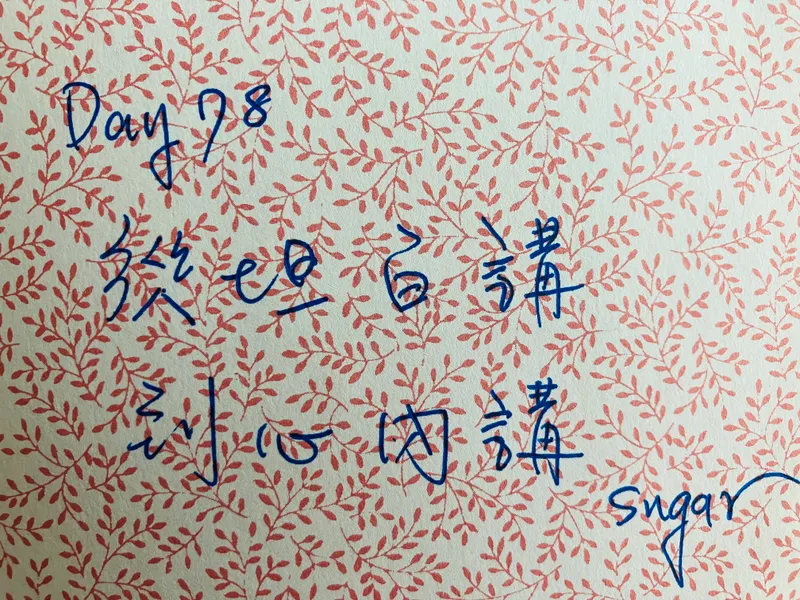 Day 78
從坦白講
到心內講
sugar